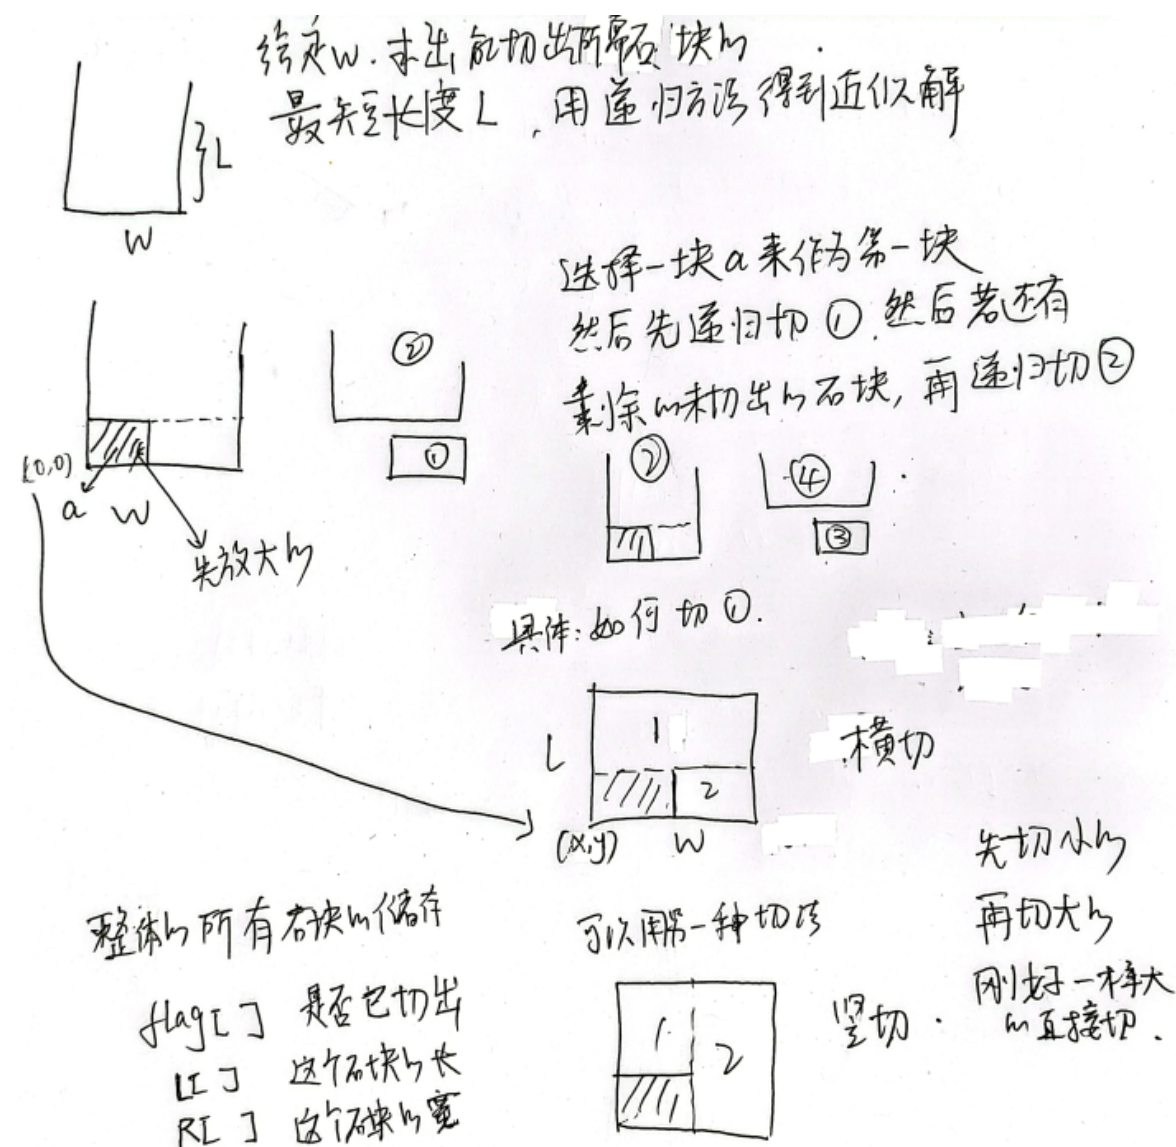 给定W.求出能切出所需石块的
最短长度L,用递归方法得到近似解
L
W
选择一块a来作为第一块
然后先递归切①.然后若还有
剩余的未切出的石块,再递归切②
②
①
(0,0)
a W
先放大的
②
④
③
具体:如何切①.
1
L
2
横切
(x,y) W
先切小的
再切大的
刚好一样大
的直接切.
整体的所有石块的储存
可以用另一种切法
flag[ ] 是否已切出
L[ ] 这个石块的长
R[ ] 这个石块的宽
1
2
竖切.